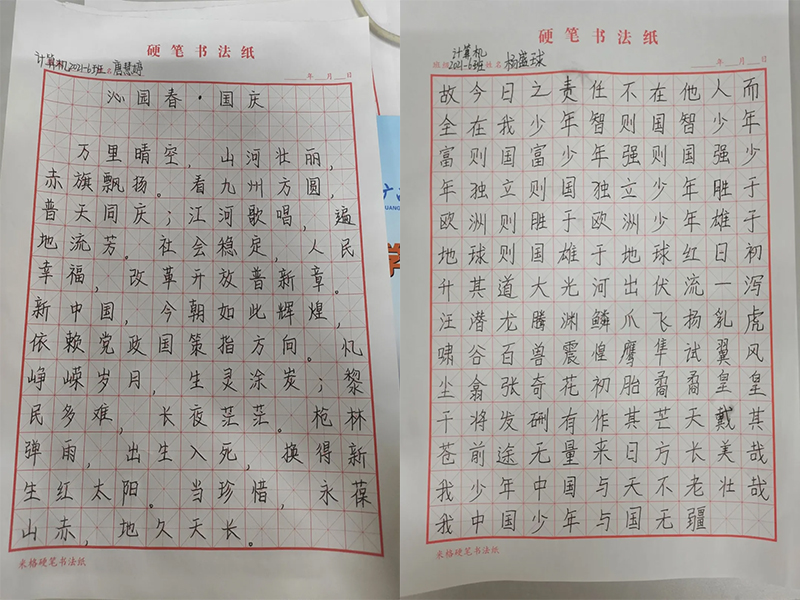 硬笔书法纸
计算机2021-6班 名唐慧婷
年 月 日
沁园春·国庆
万里晴空，山河壮丽，
赤旗飘扬。看九州方圆，
普天同庆；江河歌唱，遍
地流芳。社会稳定，人民
幸福，改革开放普新章。
新中国，今朝如此辉煌，
依赖党政国策指方向。忆
峥嵘岁月，生灵涂炭；黎
民多难，长夜茫茫。枪林
弹雨，出生入死，换得新
生红太阳。当珍惜，永葆
山赤，地久天长。
米格硬笔书法纸
硬笔书法纸
计算机
班级2021-6班 姓名杨滋球
年 月 日
故今日之责任不在他人而
全在我少年智则国智少年
富则国富少年强则国强少
年独立则国独立少年胜于
欧洲则胜于欧洲少年雄于
地球则国雄于地球红日初
升其道大光河出伏流一泻
汪潜龙腾渊鳞爪飞扬乳虎
啸谷百兽震惶鹰隼试翼风
尘翕张奇花初胎矞矞皇皇
干将发硎有作其芒天戴其
苍前途无量来日方长美哉
我少年中国与天不老壮哉
我中国少年与国无疆
米格硬笔书法纸